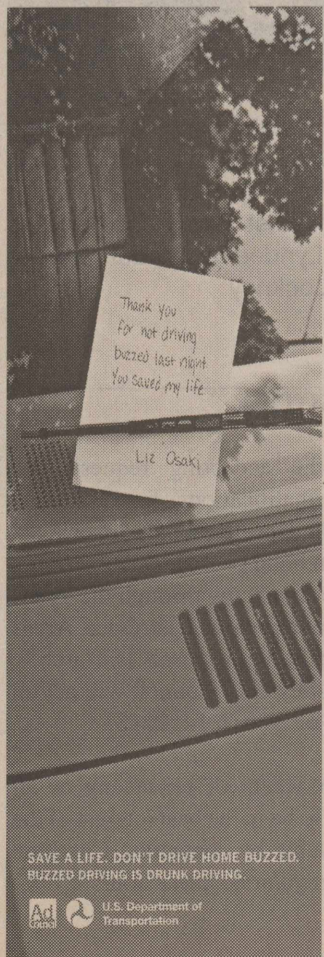 Thank you
for not driving
buzzed last night
You saved my life
Liz Osaki
SAVE A LIFE. DON'T DRIVE HOME BUZZED.
BUZZED DRIVING IS DRUNK DRIVING.
Ad
COUNCIL
U.S. Department of
Transportation